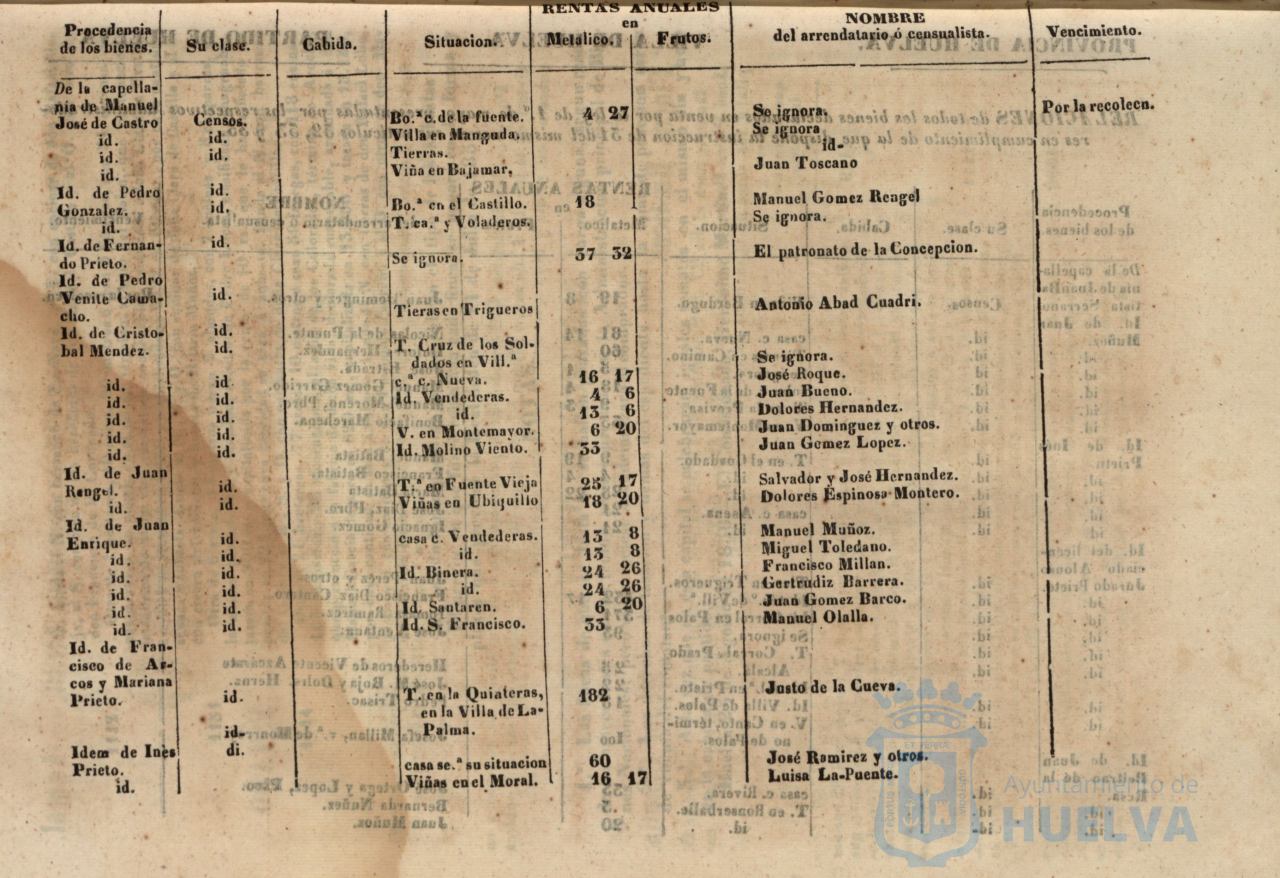 RENTAS ANUALES
Procedencia de los bienes. Su clase. Cabida. Situacion. en Metálico. Frutos. NOMBRE del arrendatario ó censualista. Vencimiento.
De la capella-
nía de Manuel
José de Castro Censos. Bo.ª c. de la fuente. 4 27 Se ignora. Por la recolecn.
id. id. Villa en Manguda. Se ignora
id. id. Tierras. id-
id. Viña en Bajamar, Juan Toscano
Id. de Pedro id.
Gonzalez. id. Bo.ª en el Castillo. 18 Manuel Gomez Rengel
id. T. ca.ª y Voladeros. Se ignora.
Id. de Fernan- id.
do Prieto. Se ignora. 37 32 El patronato de la Concepcion.
Id. de Pedro
Venite Cama- id.
cho. Tieras en Trigueros Antonio Abad Cuadri.
Id. de Cristo- id.
bal Mendez. id. T. Cruz de los Sol-
dados en Vill.ª Se ignora.
id. id c.ª c. Nueva. 16 17 José Roque.
id. id. Id. Vendederas. 4 6 Juan Bueno.
id. id. id. 13 6 Dolores Hernandez.
id. id. V. en Montemayor. 6 20 Juan Dominguez y otros.
id. id. Id. Molino Viento. 33 Juan Gomez Lopez.
Id. de Juan
Rengel. id. T.ª en Fuente Vieja 25 17 Salvador y José Hernandez.
id. id. Viñas en Ubiquillo 18 20 Dolores Espinosa Montero.
Id. de Juan
Enrique. id. casa c. Vendederas. 13 8 Manuel Muñoz.
id. id. id. 13 8 Miguel Toledano.
id. id. Id. Binera. 24 26 Francisco Millan.
id. id. id. 24 26 Gertrudiz Barrera.
id. id. Id. Santaren. 6 20 Juan Gomez Barco.
id. id. Id. S. Francisco. 33 Manuel Olalla.
Id. de Fran-
cisco de Ar-
cos y Mariana
Prieto. id. T. en la Quiateras, 182 Justo de la Cueva.
en la Villa de La-
id- Palma.
Idem de Ines di.
Prieto. casa se.ª su situacion 60 José Ramirez y otros.
id. Viñas en el Moral. 16 17 Luisa La-Puente.
Ayuntamiento de
HUELVA